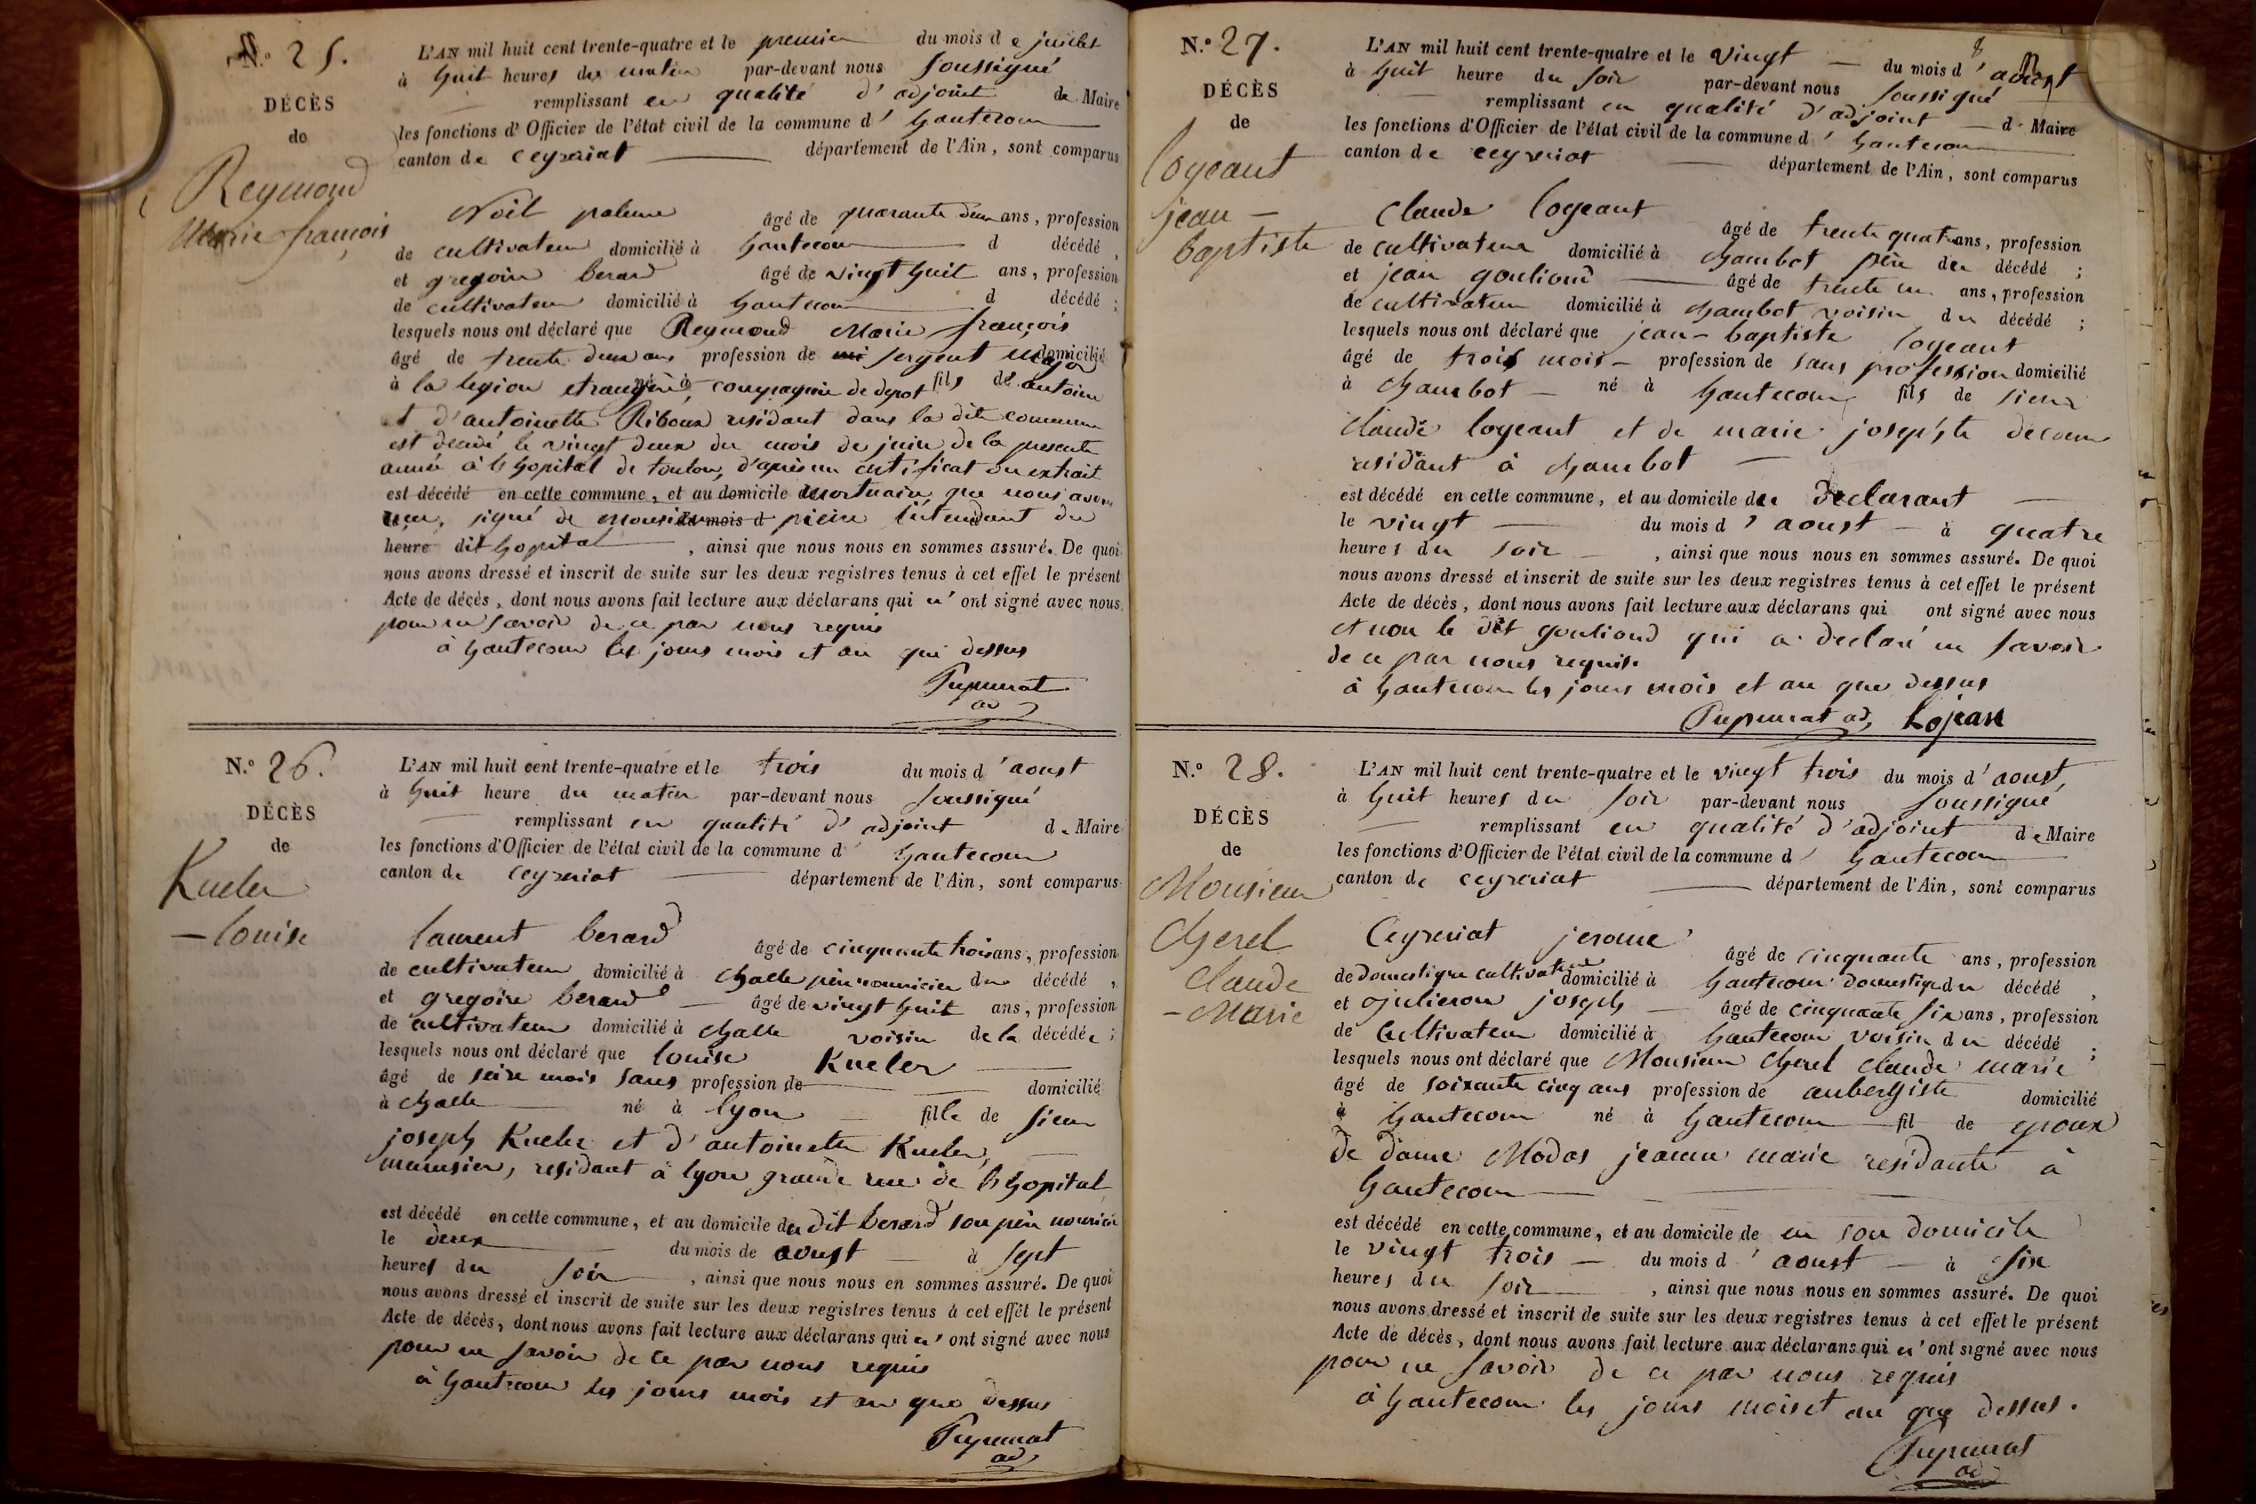 N.º 25.
DÉCÈS
de
Reymond
Marie françois
L'AN mil huit cent trente-quatre et le premier du mois de juillet
à huit heures du matin par-devant nous soussigné
remplissant en qualité d'adjoint de Maire
les fonctions d'Officier de l'état civil de la commune d' hautecour
canton de ceyzeriat département de l'Ain, sont comparus
Noël palerne âgé de quarante deux ans, profession
de cultivateur domicilié à hautecour d décédé,
et gregoire berard âgé de vingt huit ans, profession
de cultivateur domicilié à hautecour d décédé;
lesquels nous ont déclaré que Reymond Marie françois
âgé de trente deux ans profession de sergent major domicilié
à la legion etrangère né à compagnie de depot fils de antoine
et d'antoinette Riboux residant dans la dite commune
est decedé le vingt deux du mois de juin de la presente
année à l'hopital de toulon, d'après un certificat ou extrait
est décédé en cette commune, et au domicile mortuaire que nous avons
reçu, signé de monsieur du mois d pierre l'intendant du
heure dit hopital, ainsi que nous nous en sommes assuré. De quoi
nous avons dressé et inscrit de suite sur les deux registres tenus à cet effet le présent
Acte de décès, dont nous avons fait lecture aux déclarans qui n'ont signé avec nous
pour ne savoir de ce par nous requis
à hautecour les jours mois et an que dessus
ad
N.º 26.
DÉCÈS
de
Kueler
louise
L'AN mil huit cent trente-quatre et le trois du mois d'aoust
à huit heure du matin par-devant nous soussigné
remplissant en qualité d'adjoint de Maire
les fonctions d'Officier de l'état civil de la commune d' hautecour
canton de ceyzeriat département de l'Ain, sont comparus
laurent berard âgé de cinquante trois ans, profession
de cultivateur domicilié à challe père nourricier du décédé,
et gregoire berard âgé de vingt huit ans, profession
de cultivateur domicilié à challe voisin de la décédée;
lesquels nous ont déclaré que louise Kueler
âgé de seize mois sans profession de domicilié
à challe né à lyon fille de sieur
joseph Kueler et d'antoinette Kueler,
menusier, residant à lyon grande rue de l'hopital
est décédé en cette commune, et au domicile du dit berard son père nouricier
le deux du mois de aoust à sept
heures du soir, ainsi que nous nous en sommes assuré. De quoi
nous avons dressé et inscrit de suite sur les deux registres tenus à cet effet le présent
Acte de décès, dont nous avons fait lecture aux déclarans qui n'ont signé avec nous
pour ne savoir de ce par nous requis
à hautecour les jours mois et an que dessus
ad
N.º 27.
DÉCÈS
de
logeant
jean -
baptiste
8
L'AN mil huit cent trente-quatre et le vingt du mois d'aoust
à huit heure du soir par-devant nous soussigné
remplissant en qualité d'adjoint d Maire
les fonctions d'Officier de l'état civil de la commune d' hautecour
canton de ceyzeriat département de l'Ain, sont comparus
claude logeant âgé de trente quatre ans, profession
de cultivateur domicilié à chambot père du décédé;
et jean goulioud âgé de trente un ans, profession
de cultivateur domicilié à chambot voisin du décédé;
lesquels nous ont déclaré que jean-baptiste logeant
âgé de trois mois profession de sans profession domicilié
à chambot né à hautecour fils de sieur
claude logeant et de marie josephte decoeur
residant à chambot
est décédé en cette commune, et au domicile du declarant
le vingt du mois d'aoust à quatre
heures du soir, ainsi que nous nous en sommes assuré. De quoi
nous avons dressé et inscrit de suite sur les deux registres tenus à cet effet le présent
Acte de décès, dont nous avons fait lecture aux déclarans qui ont signé avec nous
et non le dit goulioud qui a declaré ne savoir
de ce par nous requis.
à hautecour les jours mois et an que dessus
ad, Lojan
N.º 28.
DÉCÈS
de
Monsieur
Cherel
claude
- Marie
L'AN mil huit cent trente-quatre et le vingt trois du mois d'aoust,
à huit heures du soir par-devant nous soussigné
remplissant en qualité d'adjoint de Maire
les fonctions d'Officier de l'état civil de la commune d' hautecour
canton de ceyzeriat département de l'Ain, sont comparus
Ceyzeriat jerome âgé de cinquante ans, profession
de domestique cultivateur domicilié à hautecour domestique du décédé,
et joseph âgé de cinquante six ans, profession
de cultivateur domicilié à hautecour voisin du décédé;
lesquels nous ont déclaré que Monsieur Cherel claude marie
âgé de soixante cinq ans profession de aubergiste domicilié
à hautecour né à hautecour fil de epoux
de dame Modas jeanne marie residante à
hautecour
est décédé en cette commune, et au domicile de en son domicile
le vingt trois du mois d'aoust à six
heures du soir, ainsi que nous nous en sommes assuré. De quoi
nous avons dressé et inscrit de suite sur les deux registres tenus à cet effet le présent
Acte de décès, dont nous avons fait lecture aux déclarans qui n'ont signé avec nous
pour ne savoir de ce par nous requis
à hautecour les jours mois et an que dessus.
ad